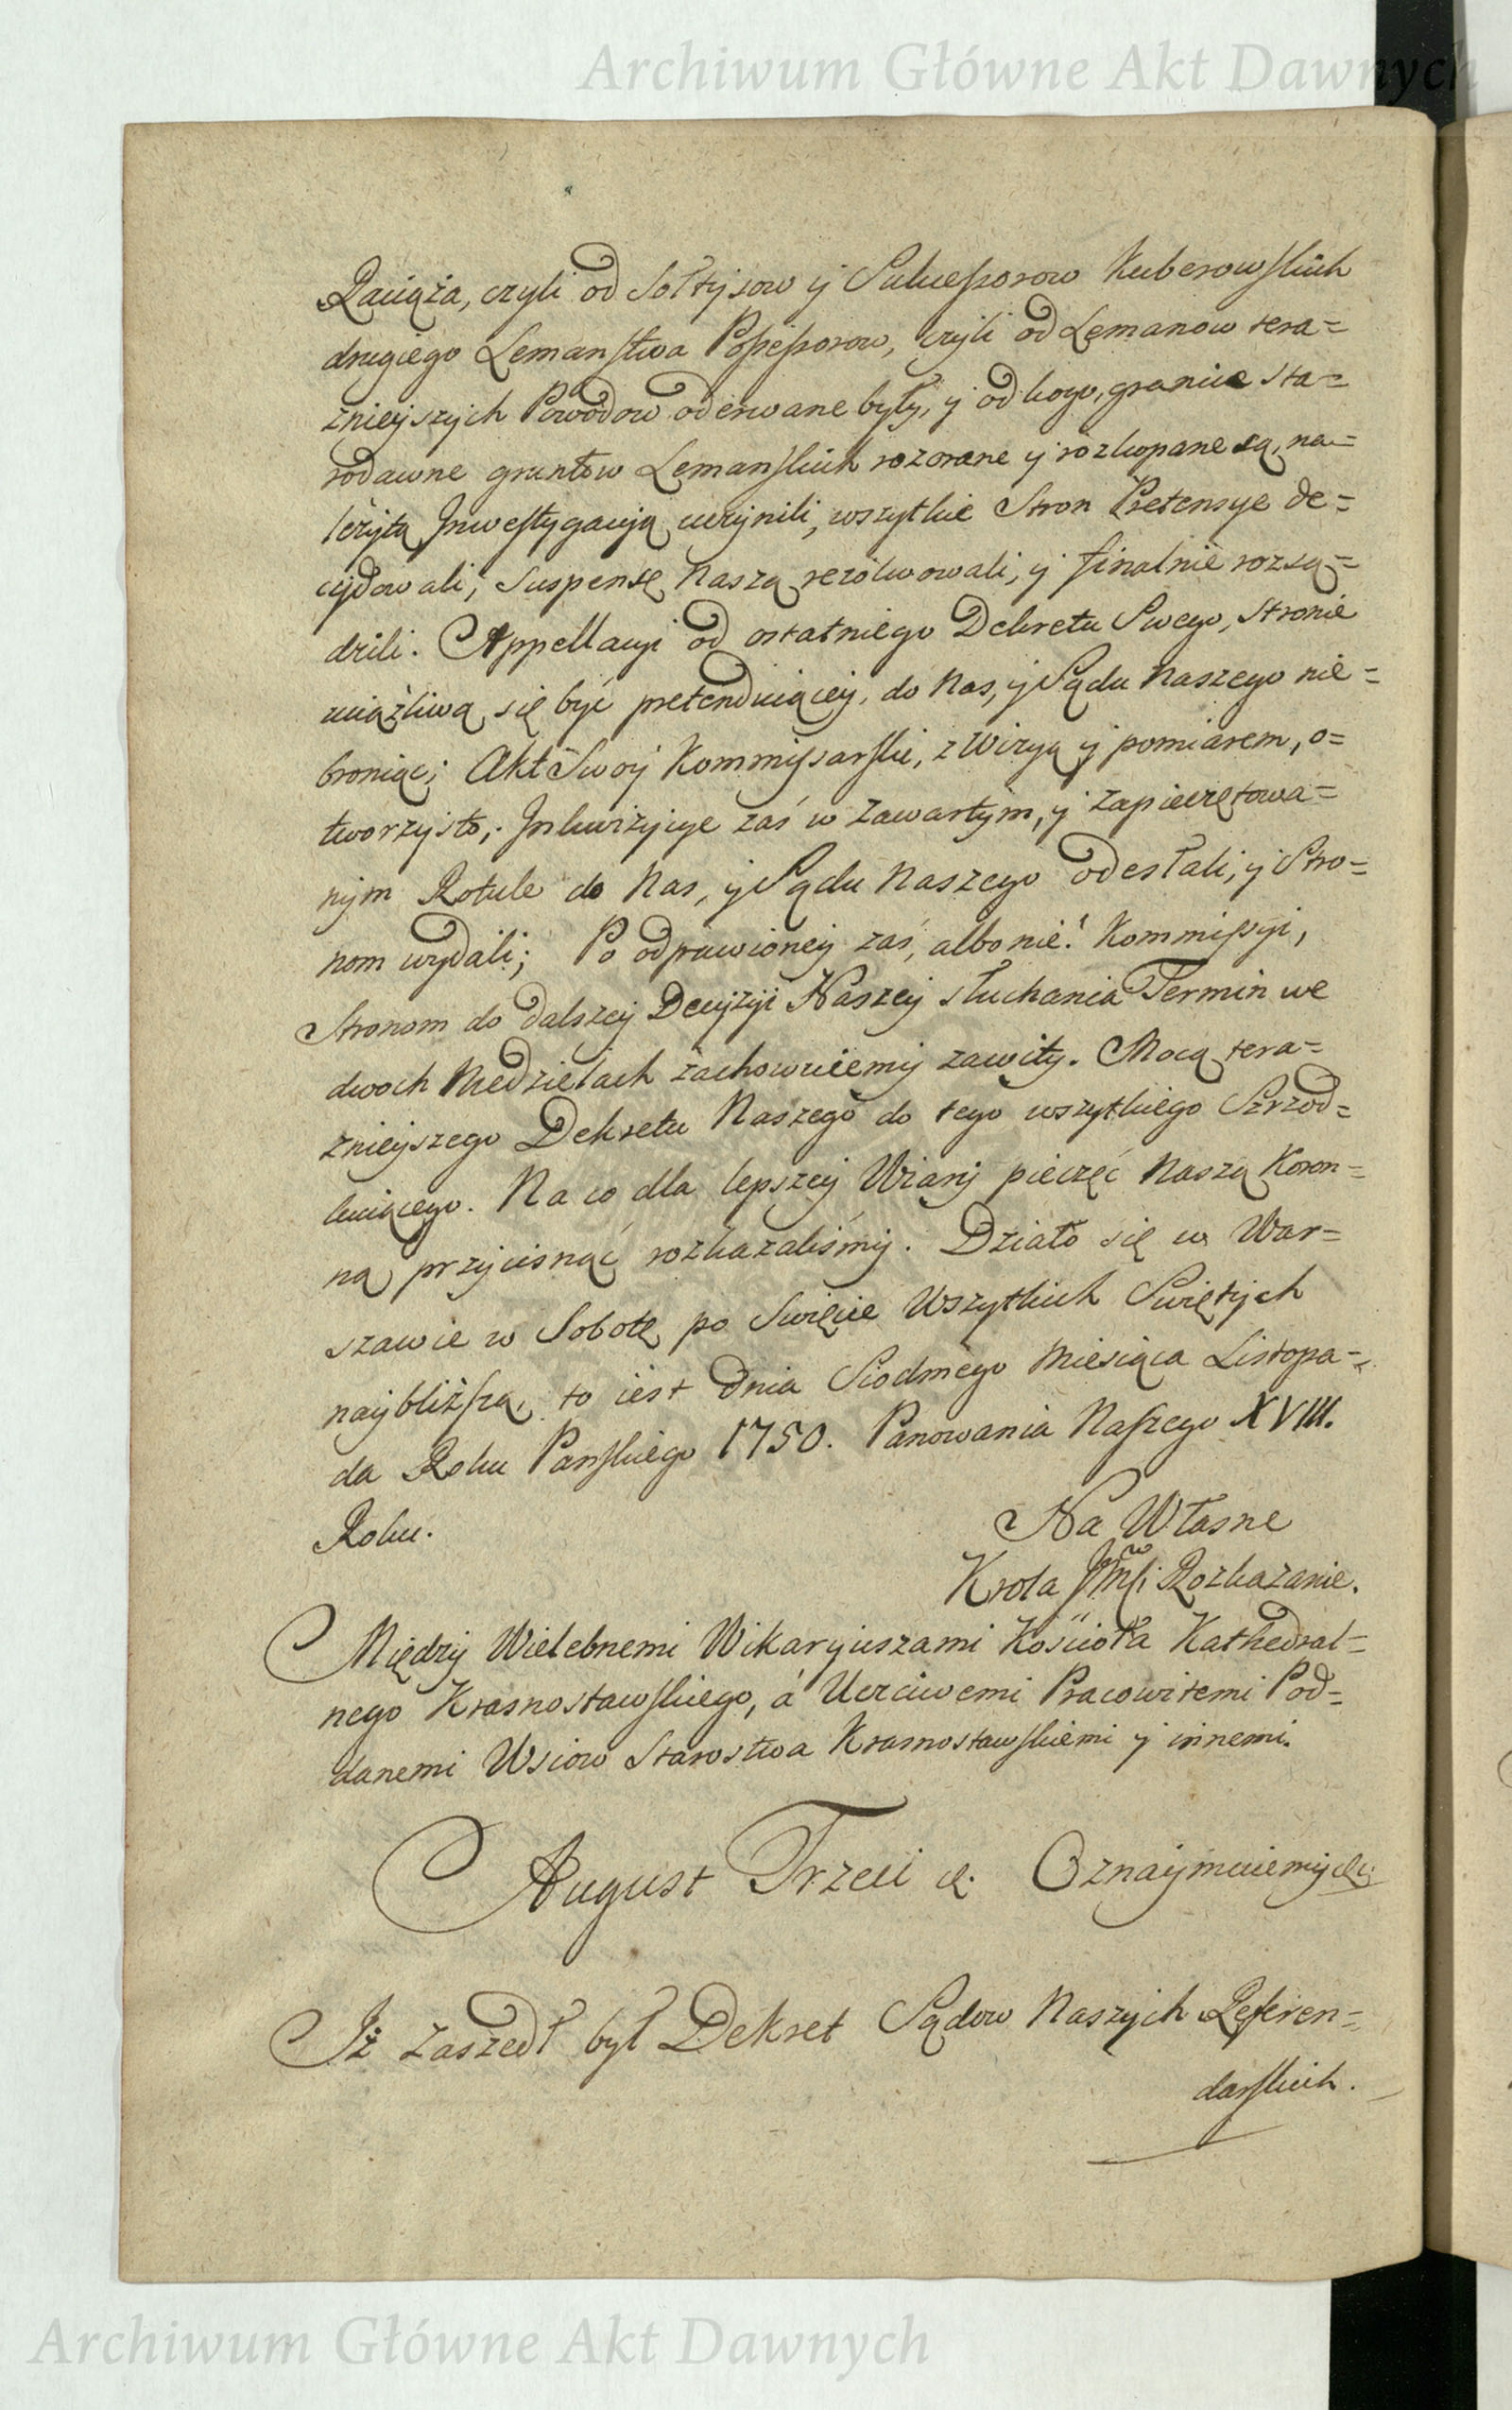 Archiwum Główne Akt Dawnych
Raciąża, czyli od Sołtysow y Sukcessorow Kuberowskich
drugiego Lemanstwa Possessorow, czyli od Lemanow tera=
znieyszych Powodow oderwane były, y od kogo, granice sta=
rodawne gruntow Lemanskich rozorane y rozkopane są, na=
leżytą Inwestygacyą uczynili, wszytkie Stron Pretensye de=
cydowali, Suspensę Naszą rezolwowali, y finalnie rozsą=
dzili. Appellacyi od ostatniego Dekretu Swego, Stronie
uciążliwą się być pretenduiącey, do Nas, y Sądu Naszego nie=
broniąc; Akt Swoy Kommissarski, z Wizyą y pomiarem, o=
tworzysto; Inkwizycye zaś w zawartym, y zapieczętowa=
nym Rotule do Nas, y Sądu Naszego odesłali, y Stro=
nom wydali; Po odprawioney zaś, albo nie! Kommissyi,
Stronom do dalszey Decyzyi Naszey słuchania Termin we
dwoch Niedzielach zachowuiemy zawity. Mocą tera=
znieyszego Dekretu Naszego do tego wszytkiego Szrzod=
kuiącego. Na co dla lepszey Wiary pieczęć Naszą Koron=
ną przycisnąć rozkazaliśmy. Działo się w War=
szawie w Sobotę po Swięcie Wszytkich Swiętych
naybliższą, to iest Dnia Siodmego Miesiąca Listopa=
da Roku Panskiego 1750. Panowania Naszego XVIII.
Roku.
Na Własne
Krola Jmści Rozkazanie.
Między Wielebnemi Wikaryuszami Kościoła Kathedral=
nego Krasnostawskiego, á Uczciwemi Pracowitemi Pod=
danemi Wsiow Starostwa Krasnostawskiemi y innemi.
August Trzeci &. Oznaymuiemy &c;
Iż zaszedł był Dekret Sądow Naszych Referen=
darskich.
Archiwum Główne Akt Dawnych